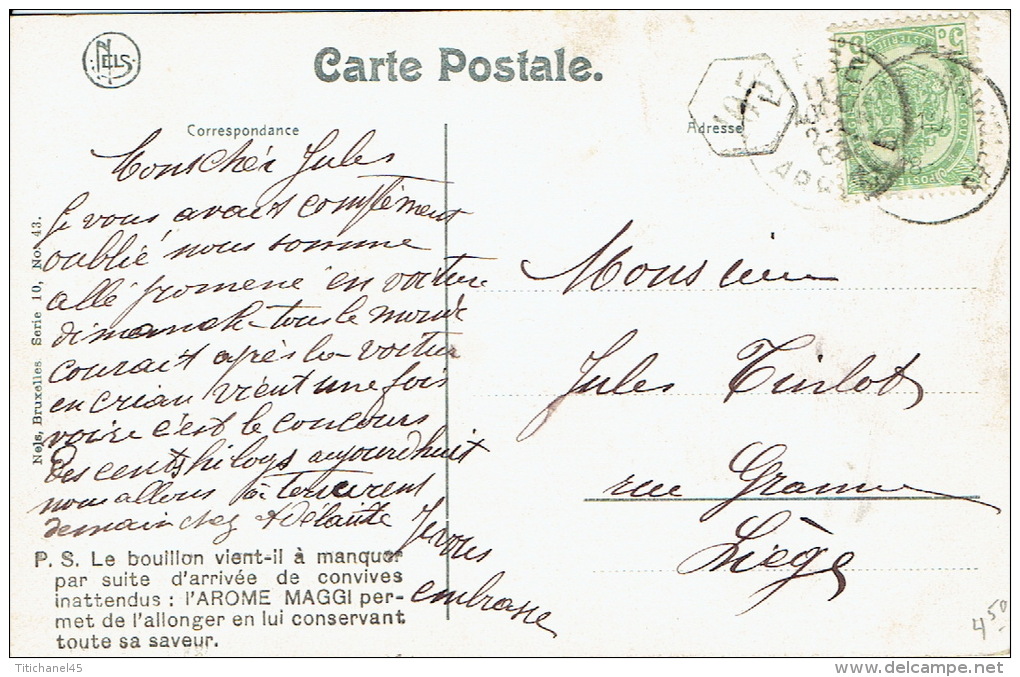 NELS
Carte Postale.
Correspondance
Adresse
Mon chér Jules
Je vous avais complèment
oublié nous somme
allé promené en voiture
dimanche tous le monde
courait après la voitur
en crian vient une fois
voire c'est le concours
des cents kilogs aujourdhuit
nous allons à
demain chez Adélaïde
Je vous
embrasse
Monsieur
Jules Tinlot
rue Gramme
Liège
Nels, Bruxelles Serie 10, No. 43.
P. S. Le bouillon vient-il à manquer
par suite d'arrivée de convives
inattendus : l'AROME MAGGI per-
met de l'allonger en lui conservant
toute sa saveur.
4 50
Titichanel45
www.delcampe.net